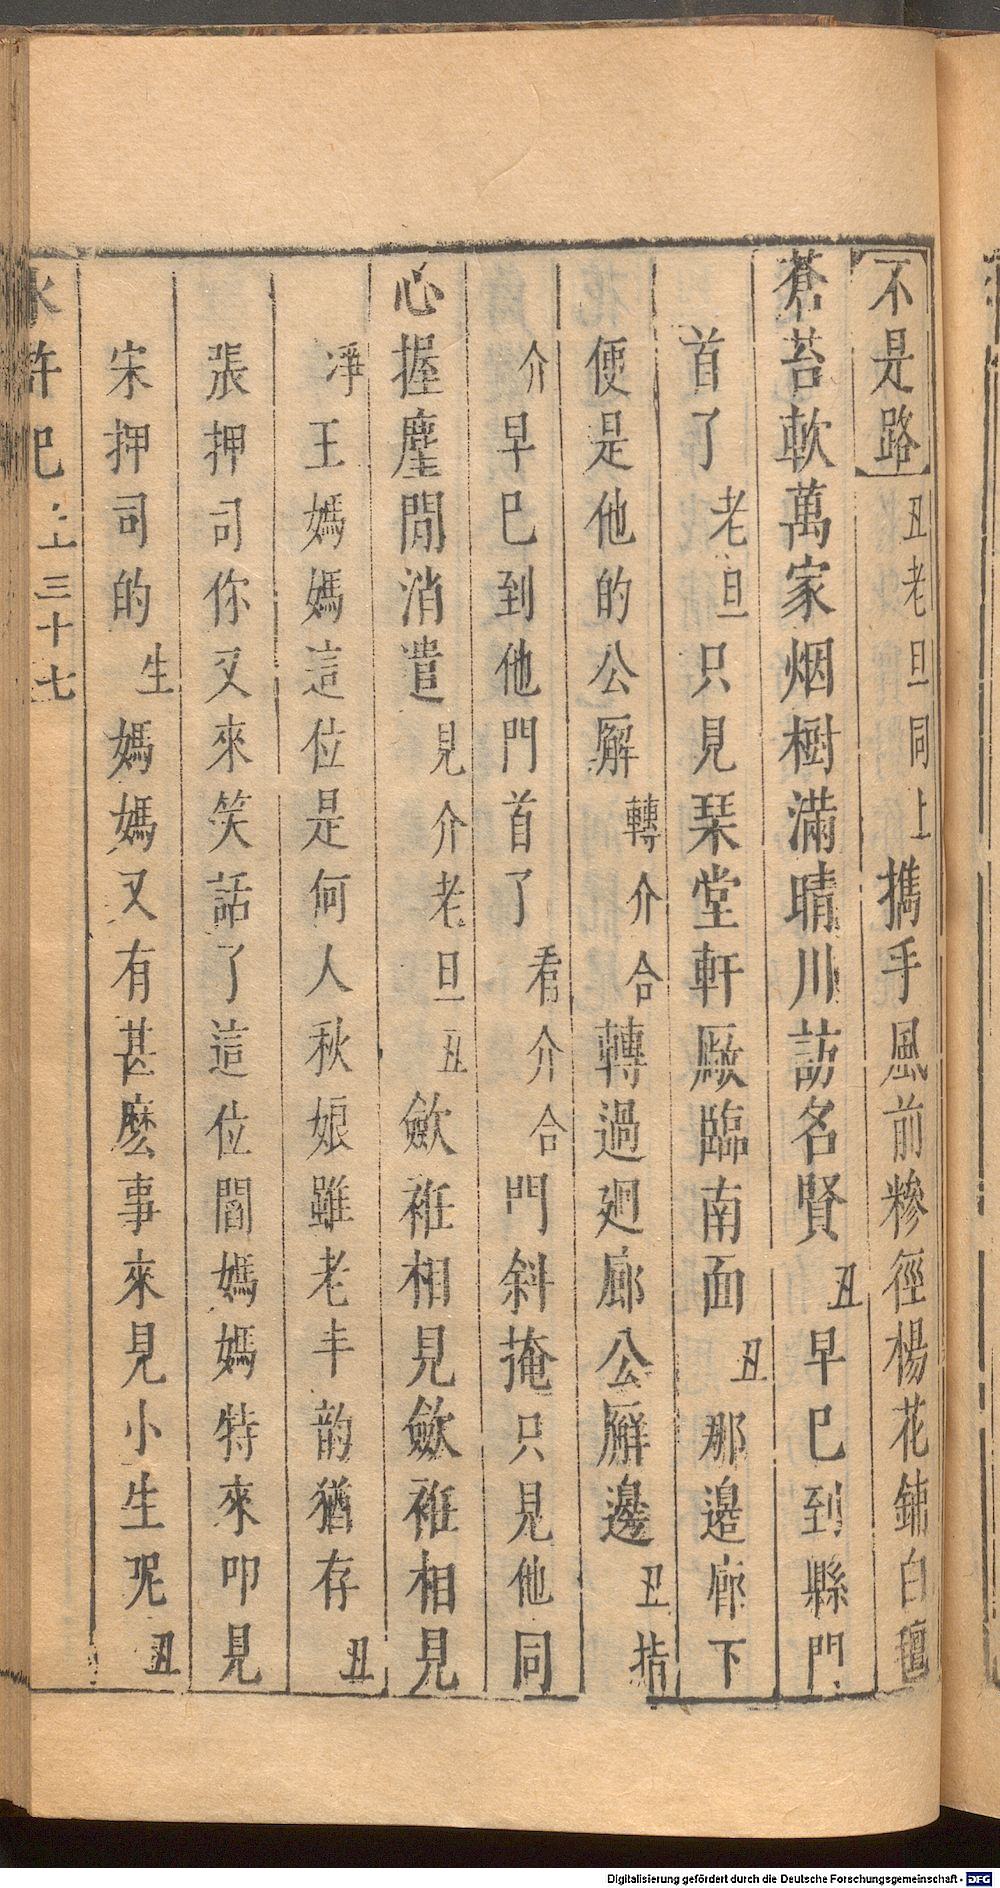 不是路丑老旦同上携手風前糝徑楊花鋪白氊
蒼苔軟萬家烟樹滿晴川訪名賢丑早巳到縣門
首了老旦只見琹堂軒厰臨南面丑那邉廊下
便是他的公廨轉介合轉過廻廊公廨邊丑指
介早巳到他門首了看介合門斜掩只見他同
心握麈閒消遣見介老旦丑歛袵相見歛袵相見
凈王媽媽這位是何人秋娘雖老丰韵猶存丑
張押司你又來笑話了這位閻媽媽特來叩見
宋押司的生媽媽又有甚麽事來見小生呢丑
水許記上三十七
Digitalisierung gefördert durch die Deutsche Forschungsgemeinschaft - DFG